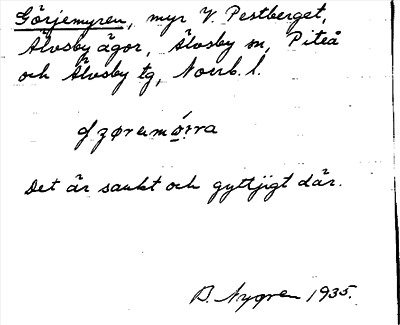 Görjemyren, myr V. Pestberget,
Älvsby ägor, Älvsby sn, Piteå
och Älvsby tg, Norrb. l.
Det är sankt och gyttjigt där.
B. Nygren 1935.